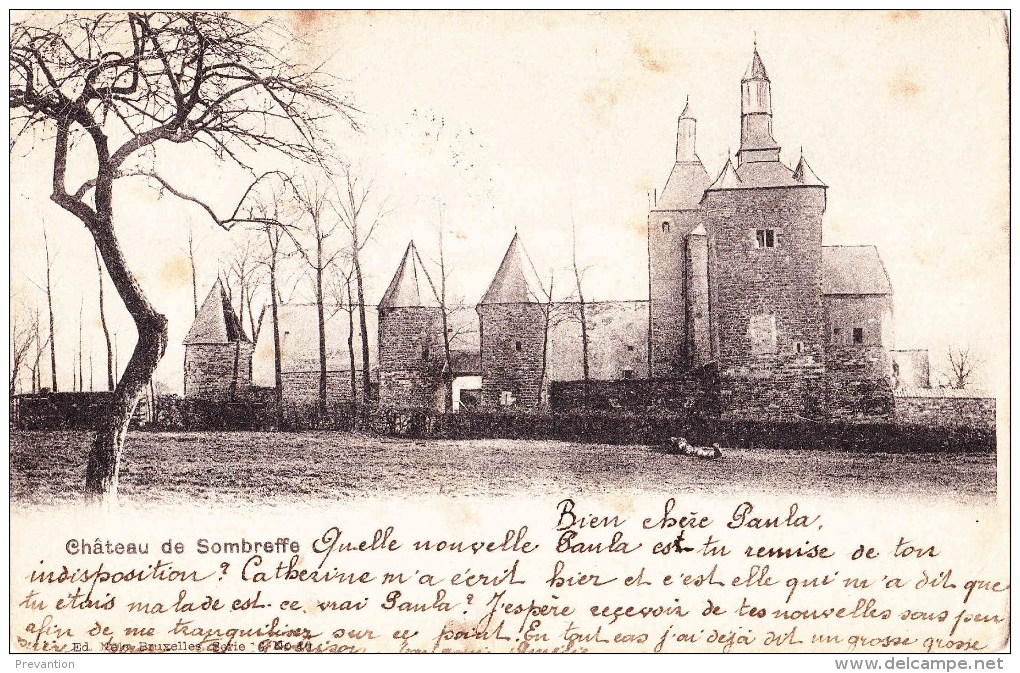 Bien chère Paula,
Château de Sombreffe Quelle nouvelle Paula est tu remise de ton
indisposition? Catherine m'a écrit hier et c'est elle qui m'a dit que
tu étais malade est-ce vrai Paula? J'espère reçevoir de tes nouvelles sous peu
afin de me tranquilisez sur ce point. En tout cas j'ai déjà dit un grosse grosse
Ed. Nels Bruxelles Série
Prevention
delcampe.net